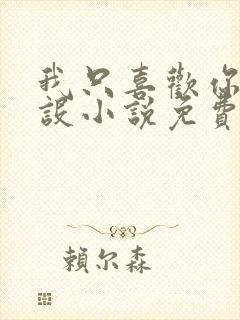 我只喜歡你
設小說免費
賴尔森